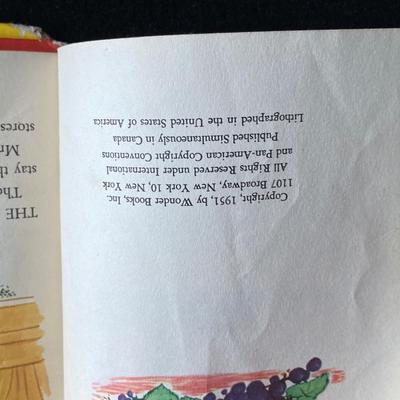 Copyright, 1951, by Wonder Books, Inc.
1107 Broadway, New York 10, New York
All Rights Reserved under International
and Pan-American Copyright Conventions
Published Simultaneously in Canada
Lithographed in the United States of America
THE
stay th
Mr
stores